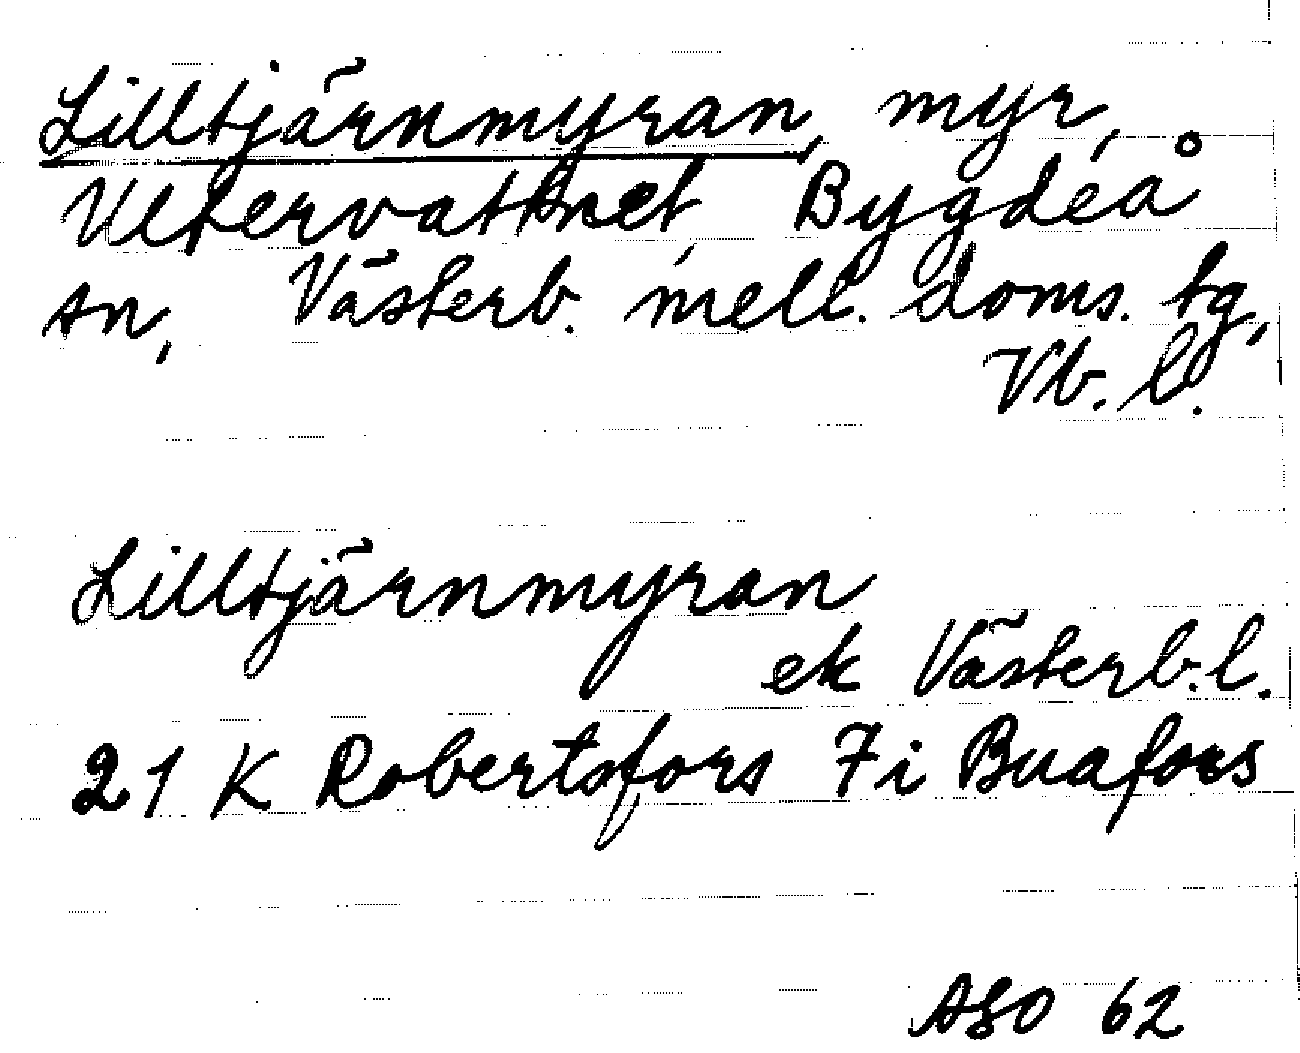 Lilltjärnmyran, myr,
Ultervattnet Bygdeå
sn, Västerb. mell. doms. tg,
Vb. l.
Lilltjärnmyran
ek Västerb. l.
21 K Robertsfors 7i Buafors
ASO 62